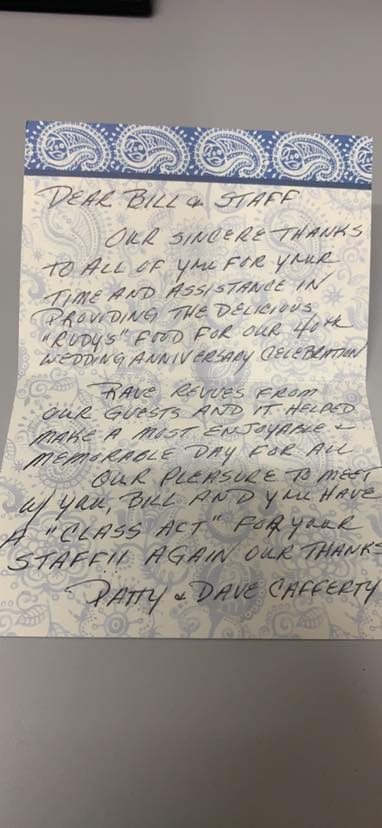 DEAR BILL & STAFF
OUR SINCERE THANKS
TO ALL OF YOU FOR YOUR
TIME AND ASSISTANCE IN
PROVIDING THE DELICIOUS
"RUDYS" FOOD FOR OUR 40TH
WEDDING ANNIVERSARY CELEBRATION
RAVE REVUES FROM
OUR GUESTS AND IT HELPED
MAKE A MOST ENJOYABLE &
MEMORABLE DAY FOR ALL
OUR PLEASURE TO MEET
W/ YOU, BILL AND YOU HAVE
A "CLASS ACT" FOR YOUR
STAFF!! AGAIN OUR THANKS
PATTY & DAVE CAFFERTY